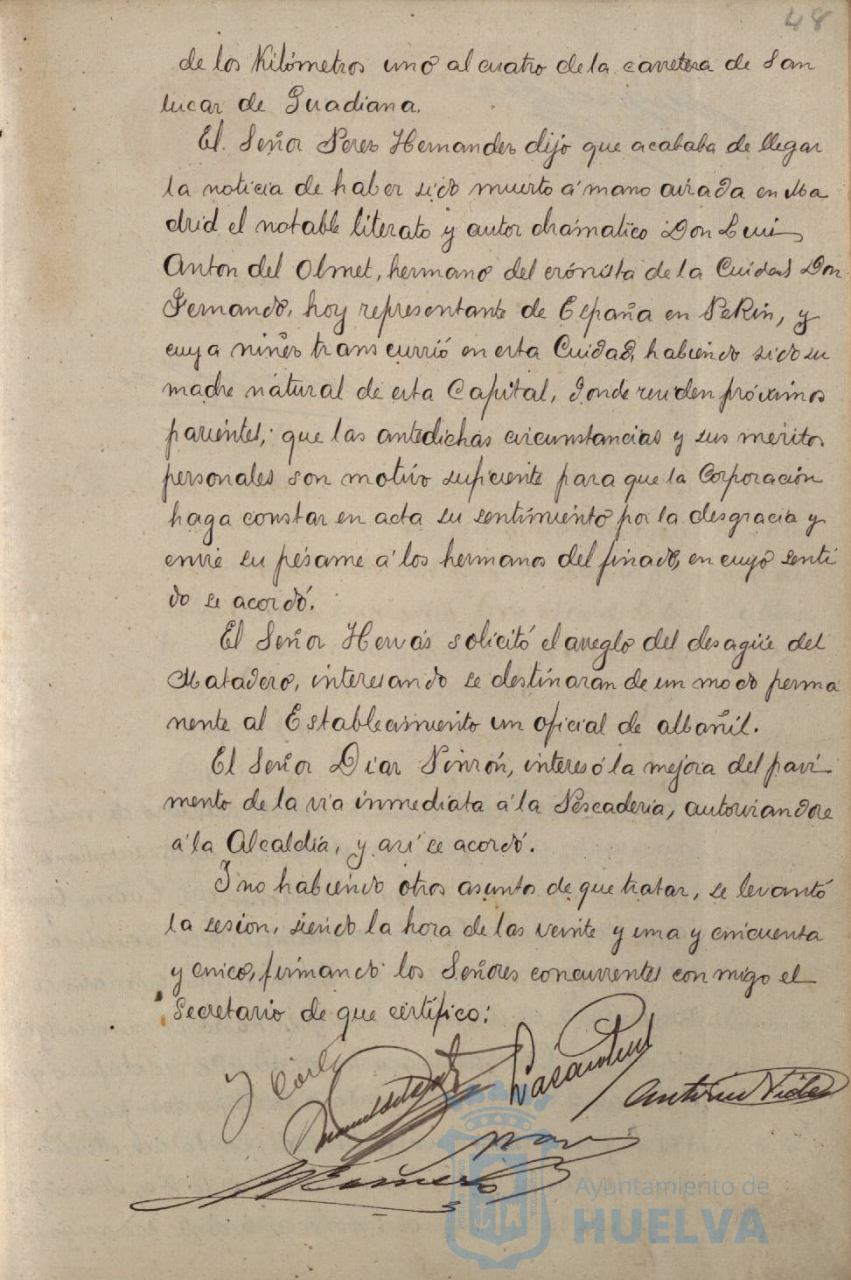 48
de los Kilómetros uno al cuatro de la carretera de San
lucar de Guadiana.
El Señor Perez Hernandez dijo que acababa de llegar
la noticia de haber sido muerto á mano airada en Ma
drid el notable literato y autor dramatico Don Luis
Anton del Olmet, hermano del crónista de la Cuidad Don
Fernando, hoy representante de España en PeKin, y
cuya niñez transcurrió en esta Cuidad, habiendo sido su
madre natural de esta Capital, donde residen próximos
parientes; que las antedichas circunstancias y sus meritos
personales son motivo suficiente para que la Corporación
haga constar en acta su sentimiento por la desgracia y
envie su pésame á los hermanos del finado, en cuyo senti
do se acordó.
El Señor Hervás solicitó el arreglo del desagüe del
Matadero, interesando se destinaran de un modo perma
nente al Establecimiento un oficial de albañil.
El Señor Diaz Pinzón, interesó la mejora del pavi
mento de la via inmediata á la Pescaderia, autorizandose
á la Alcaldia, y así se acordó.
Y no habiendo otros asuntos de que tratar, se levantó
la sesion, siendo la hora de las veinte y una y cincuenta
y cinco, firmando los Señores concurrentes conmigo el
Secretario de que certifico:
Antonio
Ayuntamiento de
HUELVA